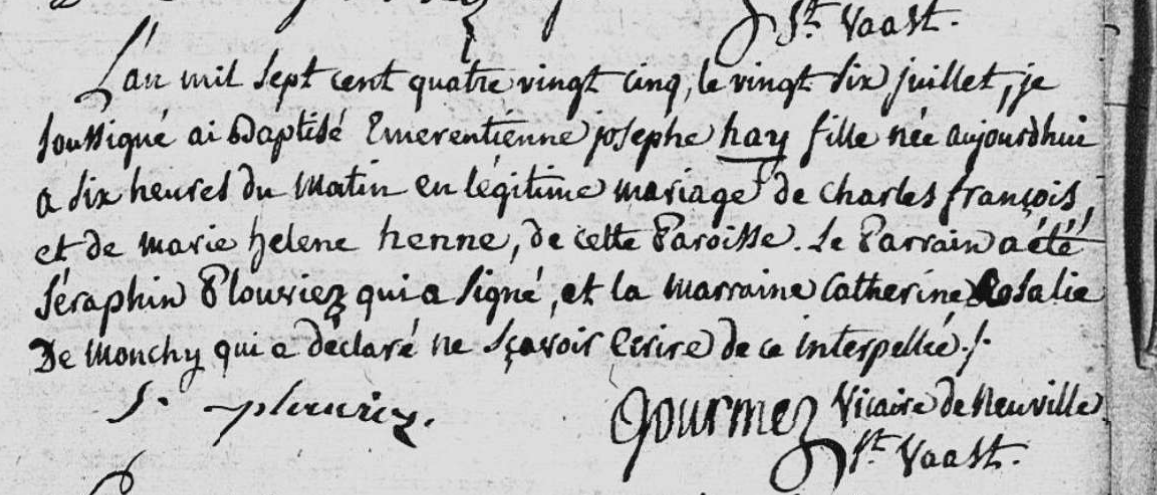 St. Vaast.
L'an mil sept cent quatre vingt cinq, le vingt six juillet, je
soussigné ai baptisé Emerentienne josephe hay fille née aujourdhui
a six heures du matin en légitime mariage de charles françois,
et de marie helene henne, de cette Paroisse. Le Parrain a été
Séraphin Plouviez qui a signé, et la marraine Catherine Rosalie
De Monchy qui a déclaré ne sçavoir Ecrire de ce interpellée ./.
S. plouviez. Gourmez Vicaire de Neuville
St. Vaast.